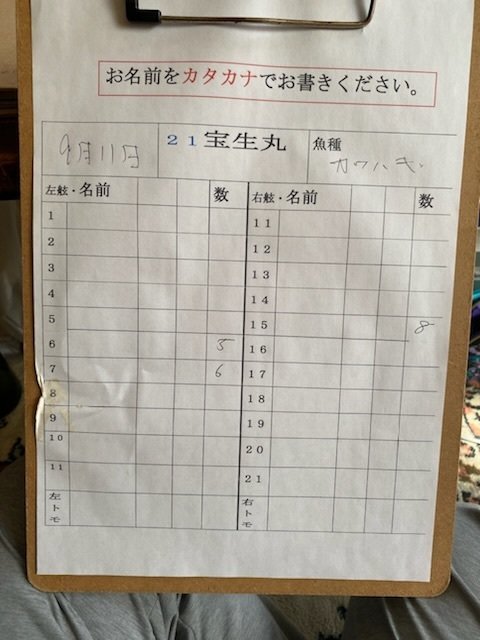 お名前をカタカナでお書きください。
9月11日 21宝生丸 魚種 カワハギ
左舷・名前 数 右舷・名前 数
1 11
2 12
3 13
4 14
5 15 8
6 5 16
7 6 17
8 18
9 19
10 20
11 21
左トモ 右トモ